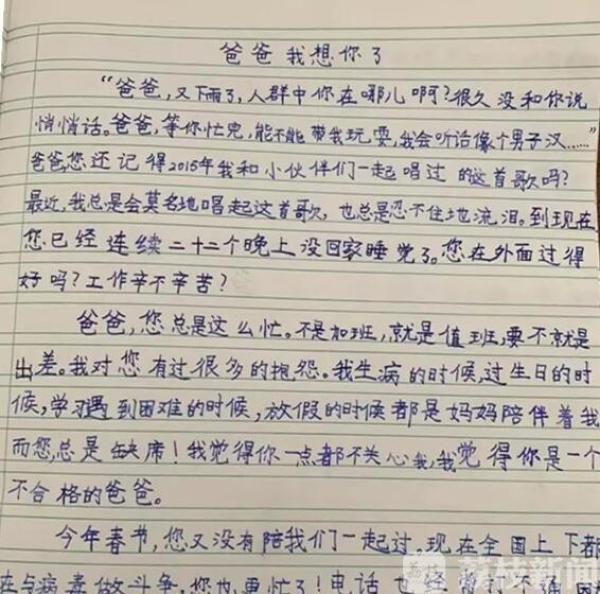 爸爸我想你了
“爸爸,又下雨了,人群中你在哪儿啊?很久没和你说
悄悄话。爸爸,等你忙完,能不能带我玩耍,我会听话像个男子汉……”
爸爸,您还记得2015年我和小伙伴们一起唱过的这首歌吗?
最近,我总是会莫名地唱起这首歌,也总是忍不住地流泪。到现在
您已经连续二十二个晚上没回家睡觉了。您在外面过得
好吗?工作辛不辛苦?
爸爸,您总是这么忙。不是加班,就是值班,要不就是
出差。我对您有过很多的抱怨。我生病的时候,过生日的时
候,学习遇到困难的时候,放假的时候都是妈妈陪伴着我
而您,总是缺席!我觉得你一点都不关心我,我觉得你是一个
不合格的爸爸。
今年春节,您又没有陪我们一起过。现在全国上下都
在与病毒做斗争,您也更忙了!电话也经常打不通
荔枝新闻